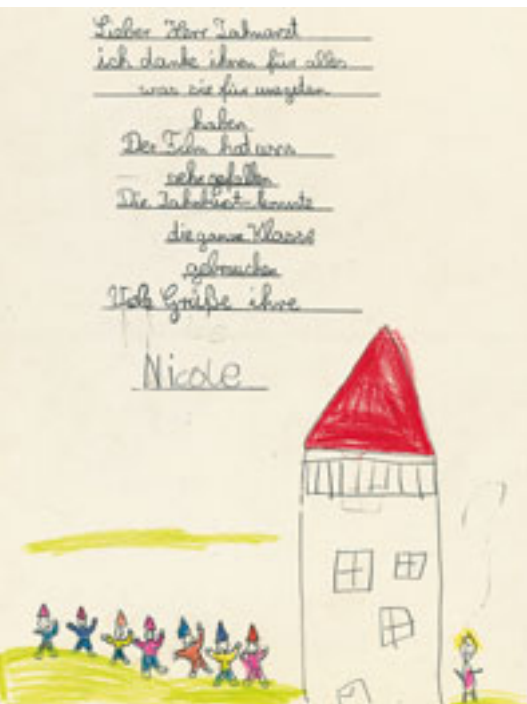 Lieber Herr Zahnarzt
ich danke ihnen für alles
was sie für uns getan
haben
Der Film hat uns
sehr gefallen
Die Zahnbürst konnte
die ganze Klasse
gebrauchen
Grüße ihre
Nicole